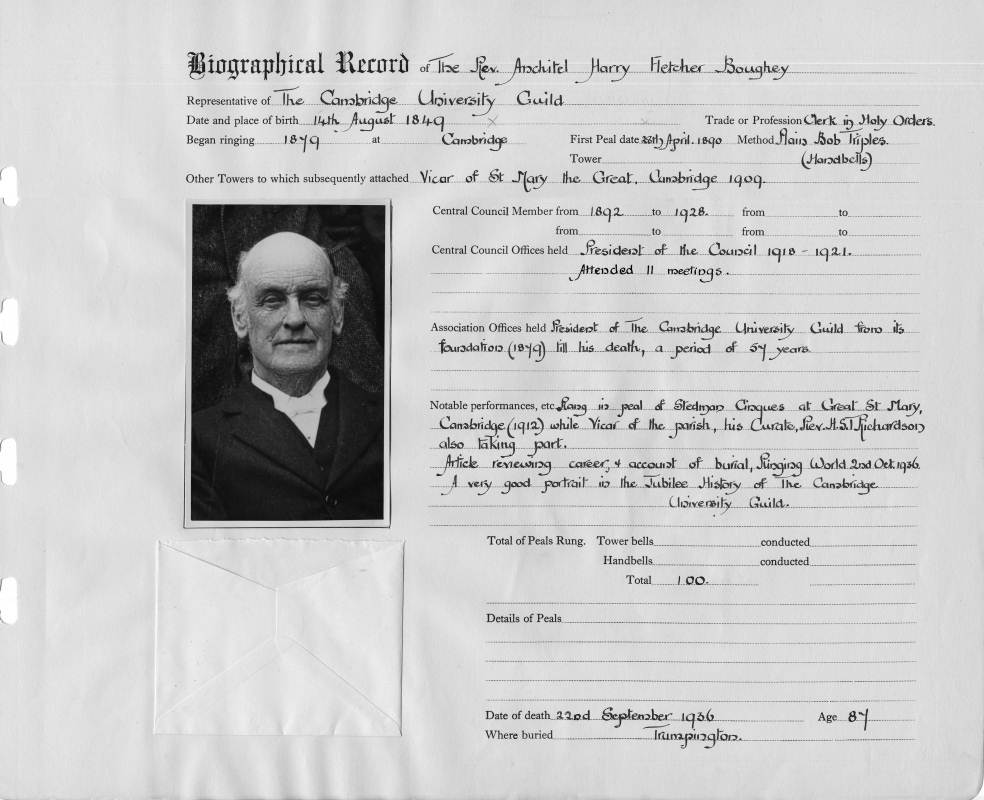 Biographical Record of The Rev. Anchitel Harry Fletcher Boughey
Representative of The Cambridge University Guild
Date and place of birth 14th August 1849 Trade or Profession Clerk in Holy Orders.
Began ringing 1879 at Cambridge First Peal date April. 1890 Method Plain Bob Triples.
Tower (Handbells)
Other Towers to which subsequently attached Vicar of St Mary the Great, Cambridge 1909.
Central Council Member from 1892 to 1928. from to
from to from to
Central Council Offices held President of the Council 1918 - 1921.
Attended 11 meetings.
Association Offices held President of The Cambridge University Guild from its
foundation (1879) till his death, a period of 57 years
Notable performances, etc. Rang in peal of Stedman Cinques at Great St Mary,
Cambridge (1912) while Vicar of the parish, his Curate, Rev. H.S.T Richardson
also taking part.
Article reviewing career, & account of burial, Ringing World 2nd Oct. 1936.
A very good portrait in the Jubilee History of The Cambridge
University Guild.
Total of Peals Rung. Tower bells conducted
Handbells conducted
Total 100.
Details of Peals
Date of death 22nd September 1936 Age 87
Where buried Trumpington.